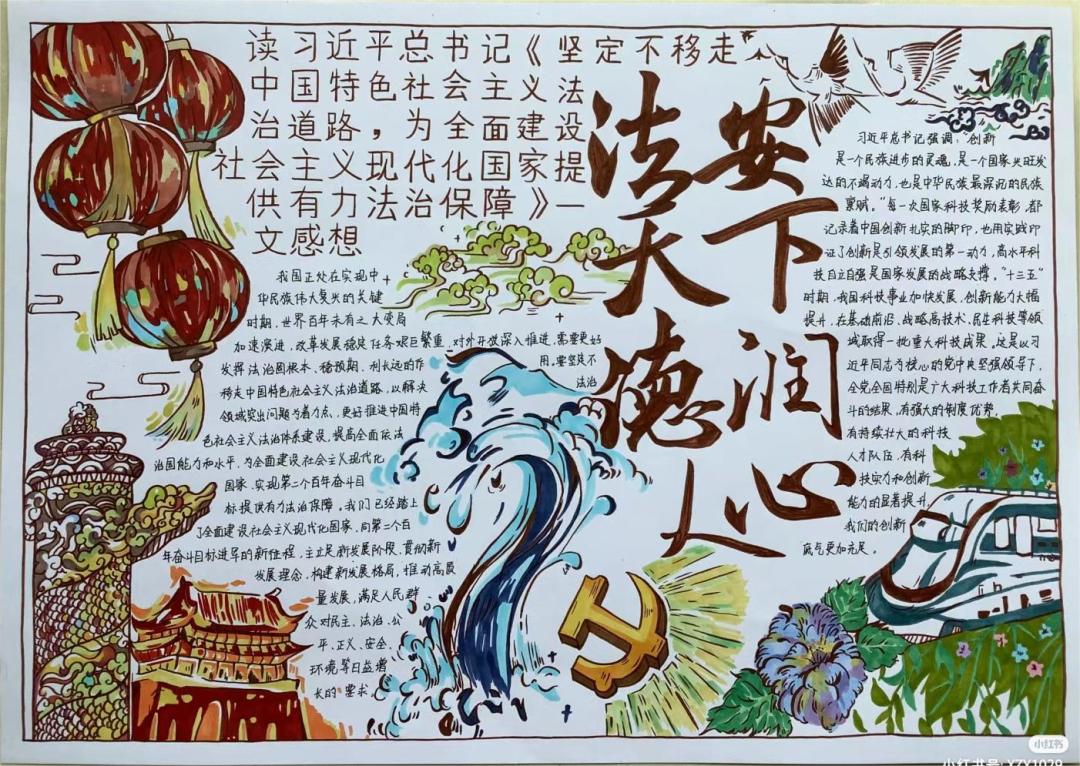 读习近平总书记《坚定不移走
中国特色社会主义法
治道路，为全面建设
社会主义现代化国家提
供有力法治保障》一
文感想
法安天下
德润人心
我国正处在实现中
华民族伟大复兴的关键
时期，世界百年未有之大变局
加速演进，改革发展稳定任务艰巨繁重，对外开放深入推进，需要更好
发挥法治固根本、稳预期、利长远的作用。要坚定不
移走中国特色社会主义法治道路，以解决法治
领域突出问题为着力点，更好推进中国特
色社会主义法治体系建设，提高全面依法
治国能力和水平，为全面建设社会主义现代化
国家、实现第二个百年奋斗目
标提供有力法治保障，我们已经踏上
了全面建设社会主义现代化国家、向第二个百
年奋斗目标进军的新征程，立足新发展阶段，贯彻新
发展理念，构建新发展格局，推动高质
量发展，满足人民群
众对民主、法治、公
平、正义、安全、
环境等日益增
长的要求，
习近平总书记强调："创新
是一个民族进步的灵魂，是一个国家兴旺发
达的不竭动力，也是中华民族最深沉的民族
禀赋。"每一次国家科技奖励表彰，都
记录着中国创新扎实的脚印，也用实践印
证了创新是引领发展的第一动力，高水平科
技自立自强是国家发展的战略支撑。"十三五"
时期，我国科技事业加快发展，创新能力大幅
提升，在基础前沿、战略高技术、民生科技等领
域取得一批重大科技成果。这是以习
近平同志为核心的党中央坚强领导下，
全党全国特别是广大科技工作者共同奋
斗的结果，有强大的制度优势，
有持续壮大的科技
人才队伍，有科
技实力和创新
能力的显著提升，
我们的创新
底气更加充足。
小红书
小红书号：XZX1029